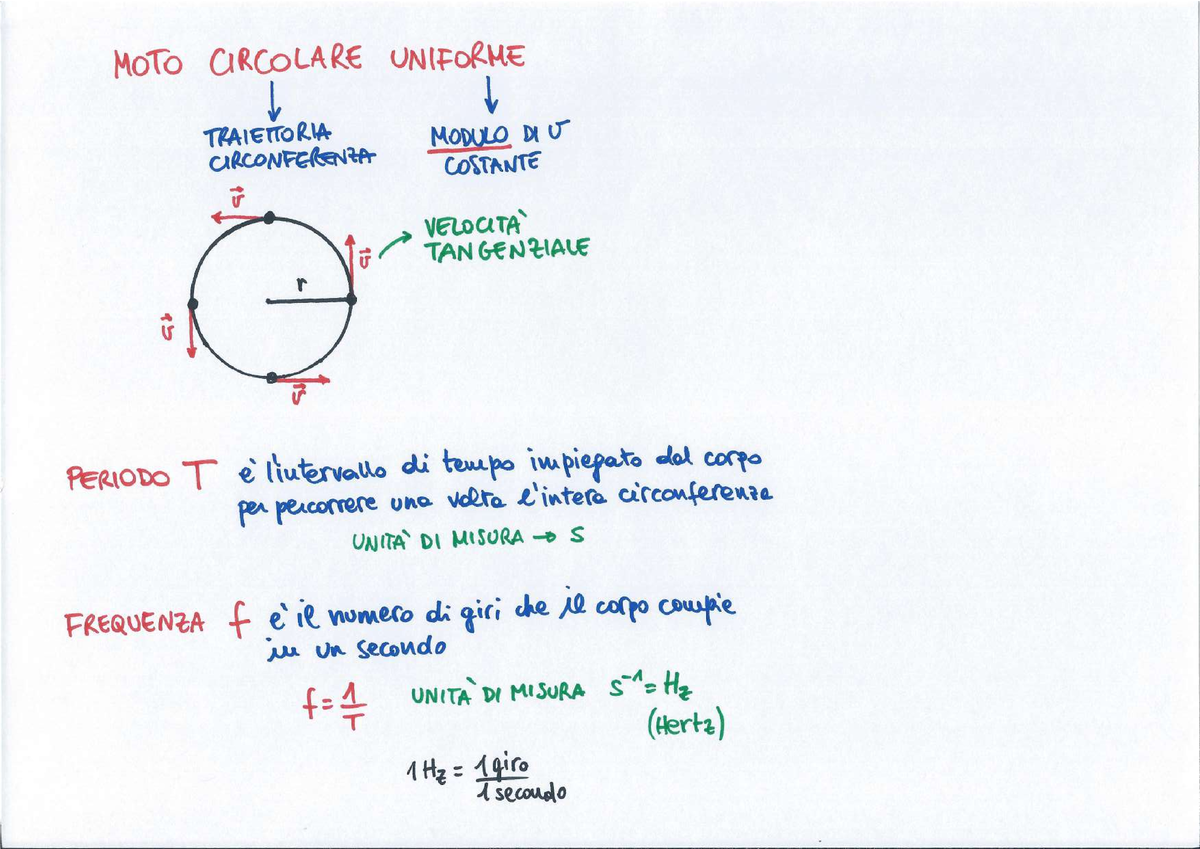 MOTO CIRCOLARE UNIFORME
TRAIETTORIA
CIRCONFERENZA
MODULO DI v
COSTANTE
v⃗
v⃗
VELOCITÀ
TANGENZIALE
r
v⃗
v⃗
PERIODO T è l'intervallo di tempo impiegato dal corpo
per percorrere una volta l'intera circonferenza
UNITÀ DI MISURA → S
FREQUENZA f è il numero di giri che il corpo compie
in un secondo
f = 1/T UNITÀ DI MISURA S⁻¹ = Hz
(Hertz)
1 Hz = 1 giro
1 secondo